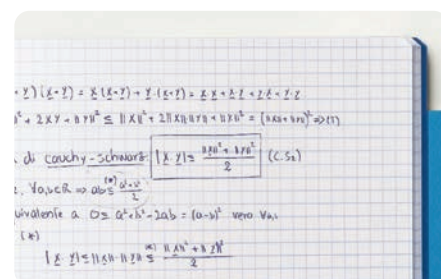 + y) (x + y) = x (x + y) + y · (x + y) = x · x + x · y + y · x + y · y
² + 2xy + ||y||² ≤ ||x||² + 2||x||·||y|| + ||y||² = (||x|| + ||y||)² => (1)
di cauchy-schwarz |x · y| ≤ ||x||² + ||y||² / 2 (C.S2)
∀a,b∈R => ab ≤ (*) a² + b² / 2
uivalente a 0 ≤ a² + b² - 2ab = (a-b)² vero ∀a,b
(*)
|x · y| ≤ ||x|| · ||y|| ≤ (*) ||x||² + ||y||² / 2